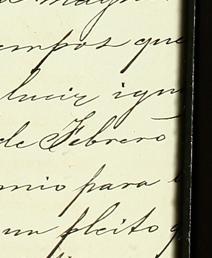 empos que
lucir igu
de Febrero
mio para
un pleito q